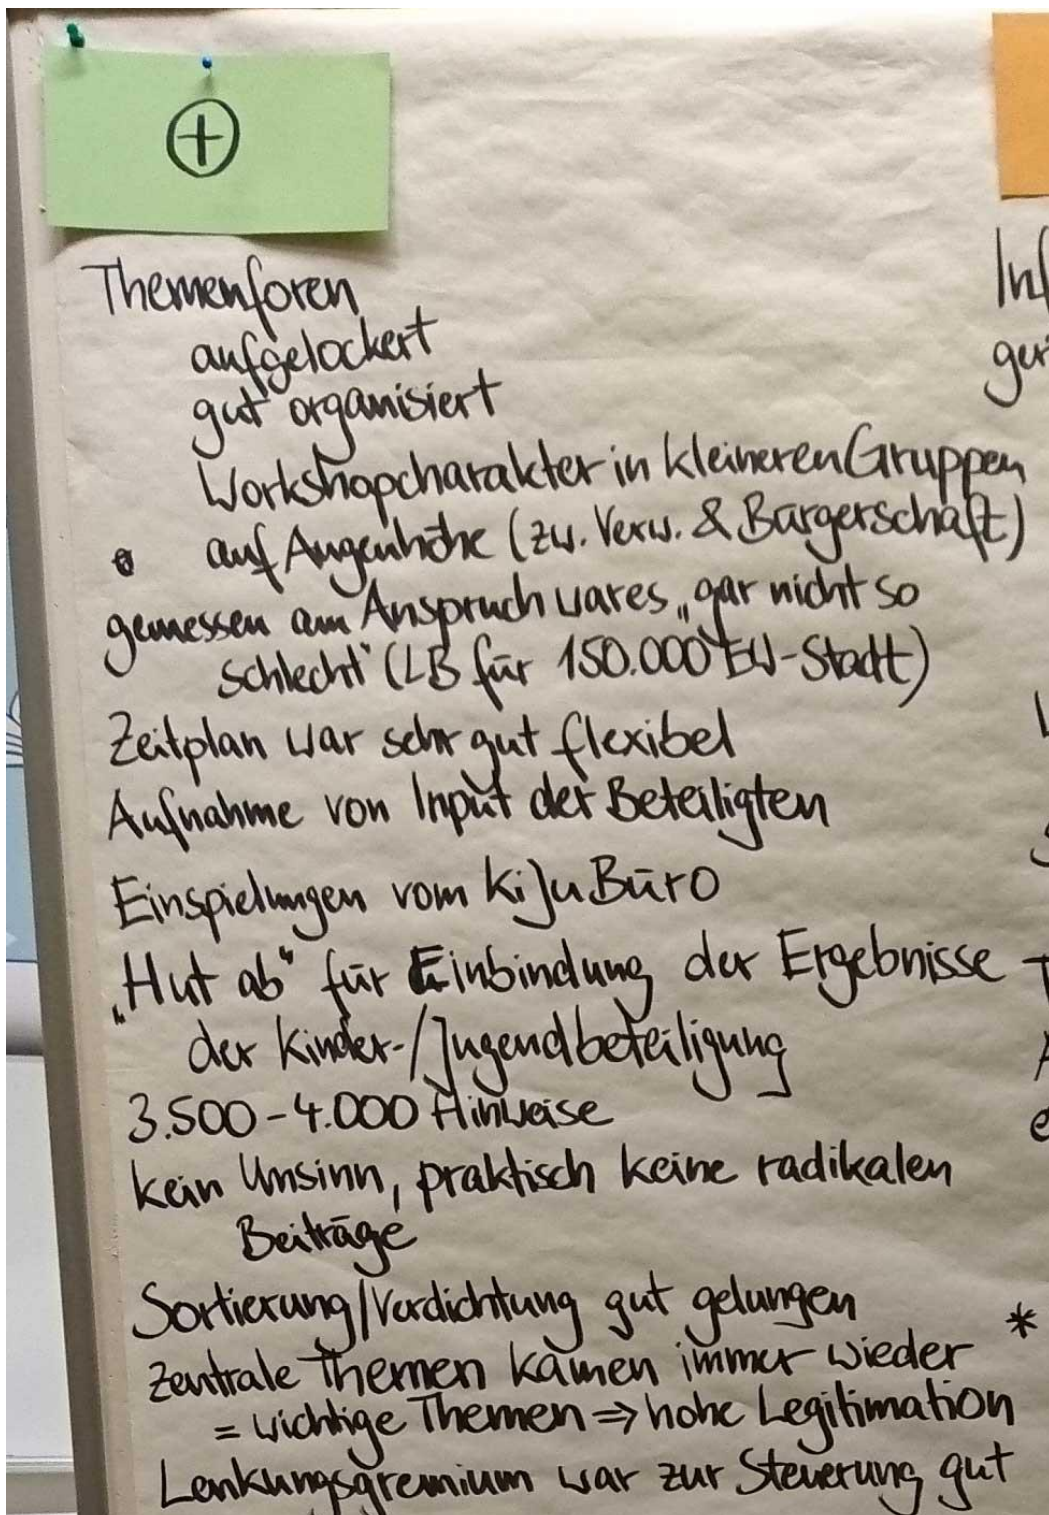 +
Themenforen
aufgelockert
gut organisiert
Workshopcharakter in kleineren Gruppen
auf Augenhöhe (zw. Verw. & Bürgerschaft)
gemessen am Anspruch war es „gar nicht so
schlecht" (LB für 150.000 EW-Stadt)
Zeitplan war sehr gut flexibel
Aufnahme von Input der Beteiligten
Einspielungen vom KiJuBüro
„Hut ab" für Einbindung der Ergebnisse
der Kinder-/Jugendbeteiligung
3.500-4.000 Hinweise
kein Unsinn, praktisch keine radikalen
Beiträge
Sortierung/Verdichtung gut gelungen
Zentrale Themen kamen immer wieder
= wichtige Themen ⇒ hohe Legitimation
Lenkungsgremium war zur Steuerung gut
Inf
ger
*